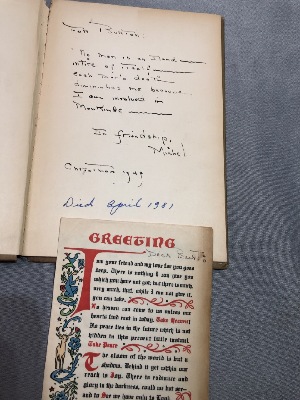 "No man is an Island
ntire of itself
each man's death
diminishes me because
I am involved in
Mankind
In friendship,
Michel
Christmas 1949
Died April 1981
GREETING
I am your friend and my love for you goes
deep. There is nothing I can give you
which you have not got; but there is much,
very much, that, while I can not give it,
you can take.
No heaven can come to us unless our
hearts find rest in today. Take Heaven!
No peace lies in the future which is not
hidden in this present little instant.
Take Peace!
The gloom of the world is but a
shadow. Behind it yet within our
reach is Joy. There is radiance and
glory in the darkness, could we but see—
and to See we have only to Look.